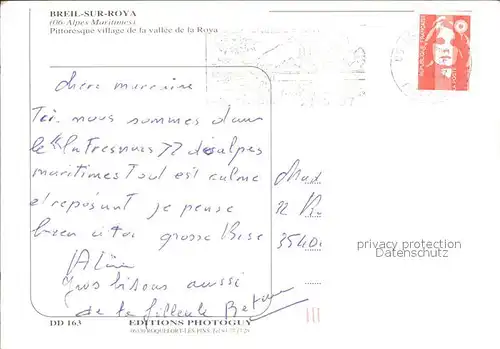 BREIL-SUR-ROYA
(06-Alpes Maritimes)
Pittoresque village de la vallée de la Roya
REPUBLIQUE FRANÇAISE
chere marraine
Ici nous sommes dans
le
maritimes Tout est calme
et reposant je pense
bien a toi grosse Bise
Gros bisous aussi
de ta filleule
Mad
12
privacy protection
Datenschutz
DD 163
EDITIONS PHOTOGUY
06330 ROQUEFORT-LES-PINS